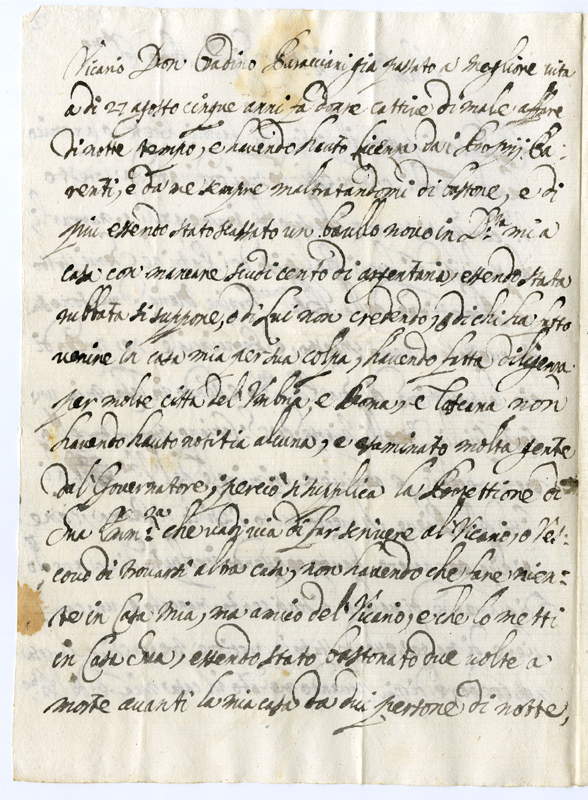 Vicario Don Gadino Buracciani già passato a megliore vita
a di 27 agosto cinque anni fà donne cattive di male affare
di notte tempo, e havendo hauto licenza da i proprij Pa-
renti, e da me sempre maltratandomi di bastone, e di
più essendo stato scassato un baullo novo in D.ta mia
casa con mancare scudi cento di argentaria, essendo stata
rubbata si suppone, o di lui non credendo, o di chi ha fatto
venire in casa mia per sua colpa, havendo fatta diligenza
per molte città del Umbria, e Roma, e Toscana non
havendo hauto notitia alcuna, e esaminato molta gente
dal Governatore, perciò si supplica la Protettione di
Sua Emm.za che vadi via di far scrivere al Vicario, o Ves-
covo di trovarsi altra casa, non havendo che fare nien-
te in Casa mia, ma amico del Vicario, e che lo metti
in Casa sua, essendo stato bastonato due volte a
morte avanti la mia casa da dui persone di notte,